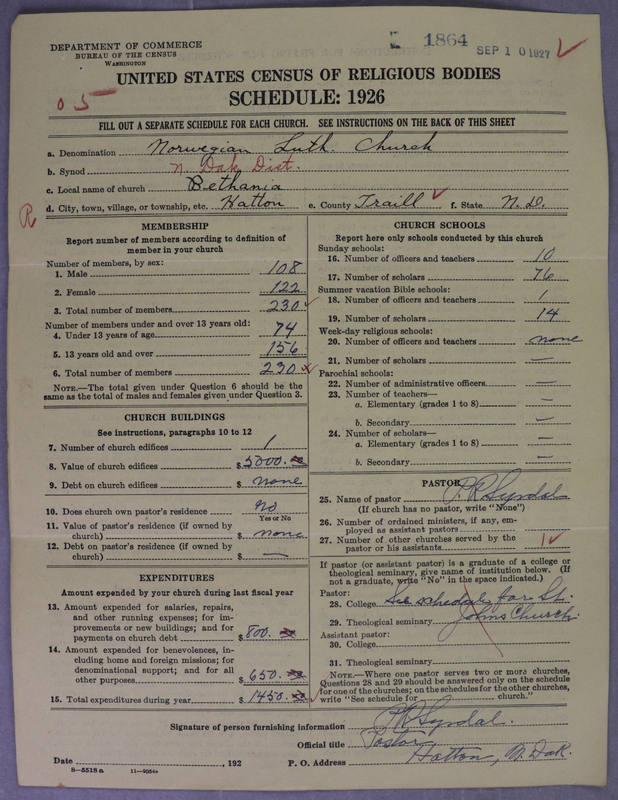 DEPARTMENT OF COMMERCE
BUREAU OF THE CENSUS
WASHINGTON
1864
SEP 10 1927
UNITED STATES CENSUS OF RELIGIOUS BODIES
SCHEDULE: 1926
05
FILL OUT A SEPARATE SCHEDULE FOR EACH CHURCH. SEE INSTRUCTIONS ON THE BACK OF THIS SHEET
a. Denomination Norwegian Luth. Church
b. Synod N. Dak Dist.
c. Local name of church Bethania
d. City, town, village, or township, etc. Hatton e. County Traill f. State N. D.
R
MEMBERSHIP
Report number of members according to definition of
member in your church
Number of members, by sex:
1. Male 108
2. Female 122
3. Total number of members 230
Number of members under and over 13 years old:
4. Under 13 years of age 74
5. 13 years old and over 156
6. Total number of members 230
NOTE.—The total given under Question 6 should be the
same as the total of males and females given under Question 3.
CHURCH BUILDINGS
See instructions, paragraphs 10 to 12
7. Number of church edifices 1
8. Value of church edifices $ 5000.
9. Debt on church edifices $ none
10. Does church own pastor's residence No
Yes or No
11. Value of pastor's residence (if owned by
church) $ none
12. Debt on pastor's residence (if owned by
church) $ —
EXPENDITURES
Amount expended by your church during last fiscal year
13. Amount expended for salaries, repairs,
and other running expenses; for im-
provements or new buildings; and for
payments on church debt $ 800.
14. Amount expended for benevolences,
including home and foreign missions; for
denominational support; and for all
other purposes $ 650.
15. Total expenditures during year $ 1450.
CHURCH SCHOOLS
Report here only schools conducted by this church
Sunday schools:
16. Number of officers and teachers 10
17. Number of scholars 76
Summer vacation Bible schools:
18. Number of officers and teachers 1
19. Number of scholars 14
Week-day religious schools:
20. Number of officers and teachers none
21. Number of scholars —
Parochial schools:
22. Number of administrative officers —
23. Number of teachers—
a. Elementary (grades 1 to 8) —
b. Secondary —
24. Number of scholars—
a. Elementary (grades 1 to 8) —
b. Secondary —
PASTOR
25. Name of pastor P. R. Syrdal
(If church has no pastor, write "None")
26. Number of ordained ministers, if any, em-
ployed as assistant pastors
27. Number of other churches served by the
pastor or his assistants 1
If pastor (or assistant pastor) is a graduate of a college or
theological seminary, give name of institution below. (If
not a graduate, write "No" in the space indicated.)
Pastor:
28. College See schedule for St.
29. Theological seminary Johns Church.
Assistant pastor:
30. College
31. Theological seminary
NOTE.—Where one pastor serves two or more churches,
Questions 28 and 29 should be answered only on the schedule
for one of the churches; on the schedules for the other churches,
write "See schedule for church."
Signature of person furnishing information P. R. Syrdal.
Official title Pastor
Date , 192 P. O. Address Hatton, N. Dak.
8—5518a 11—9054a